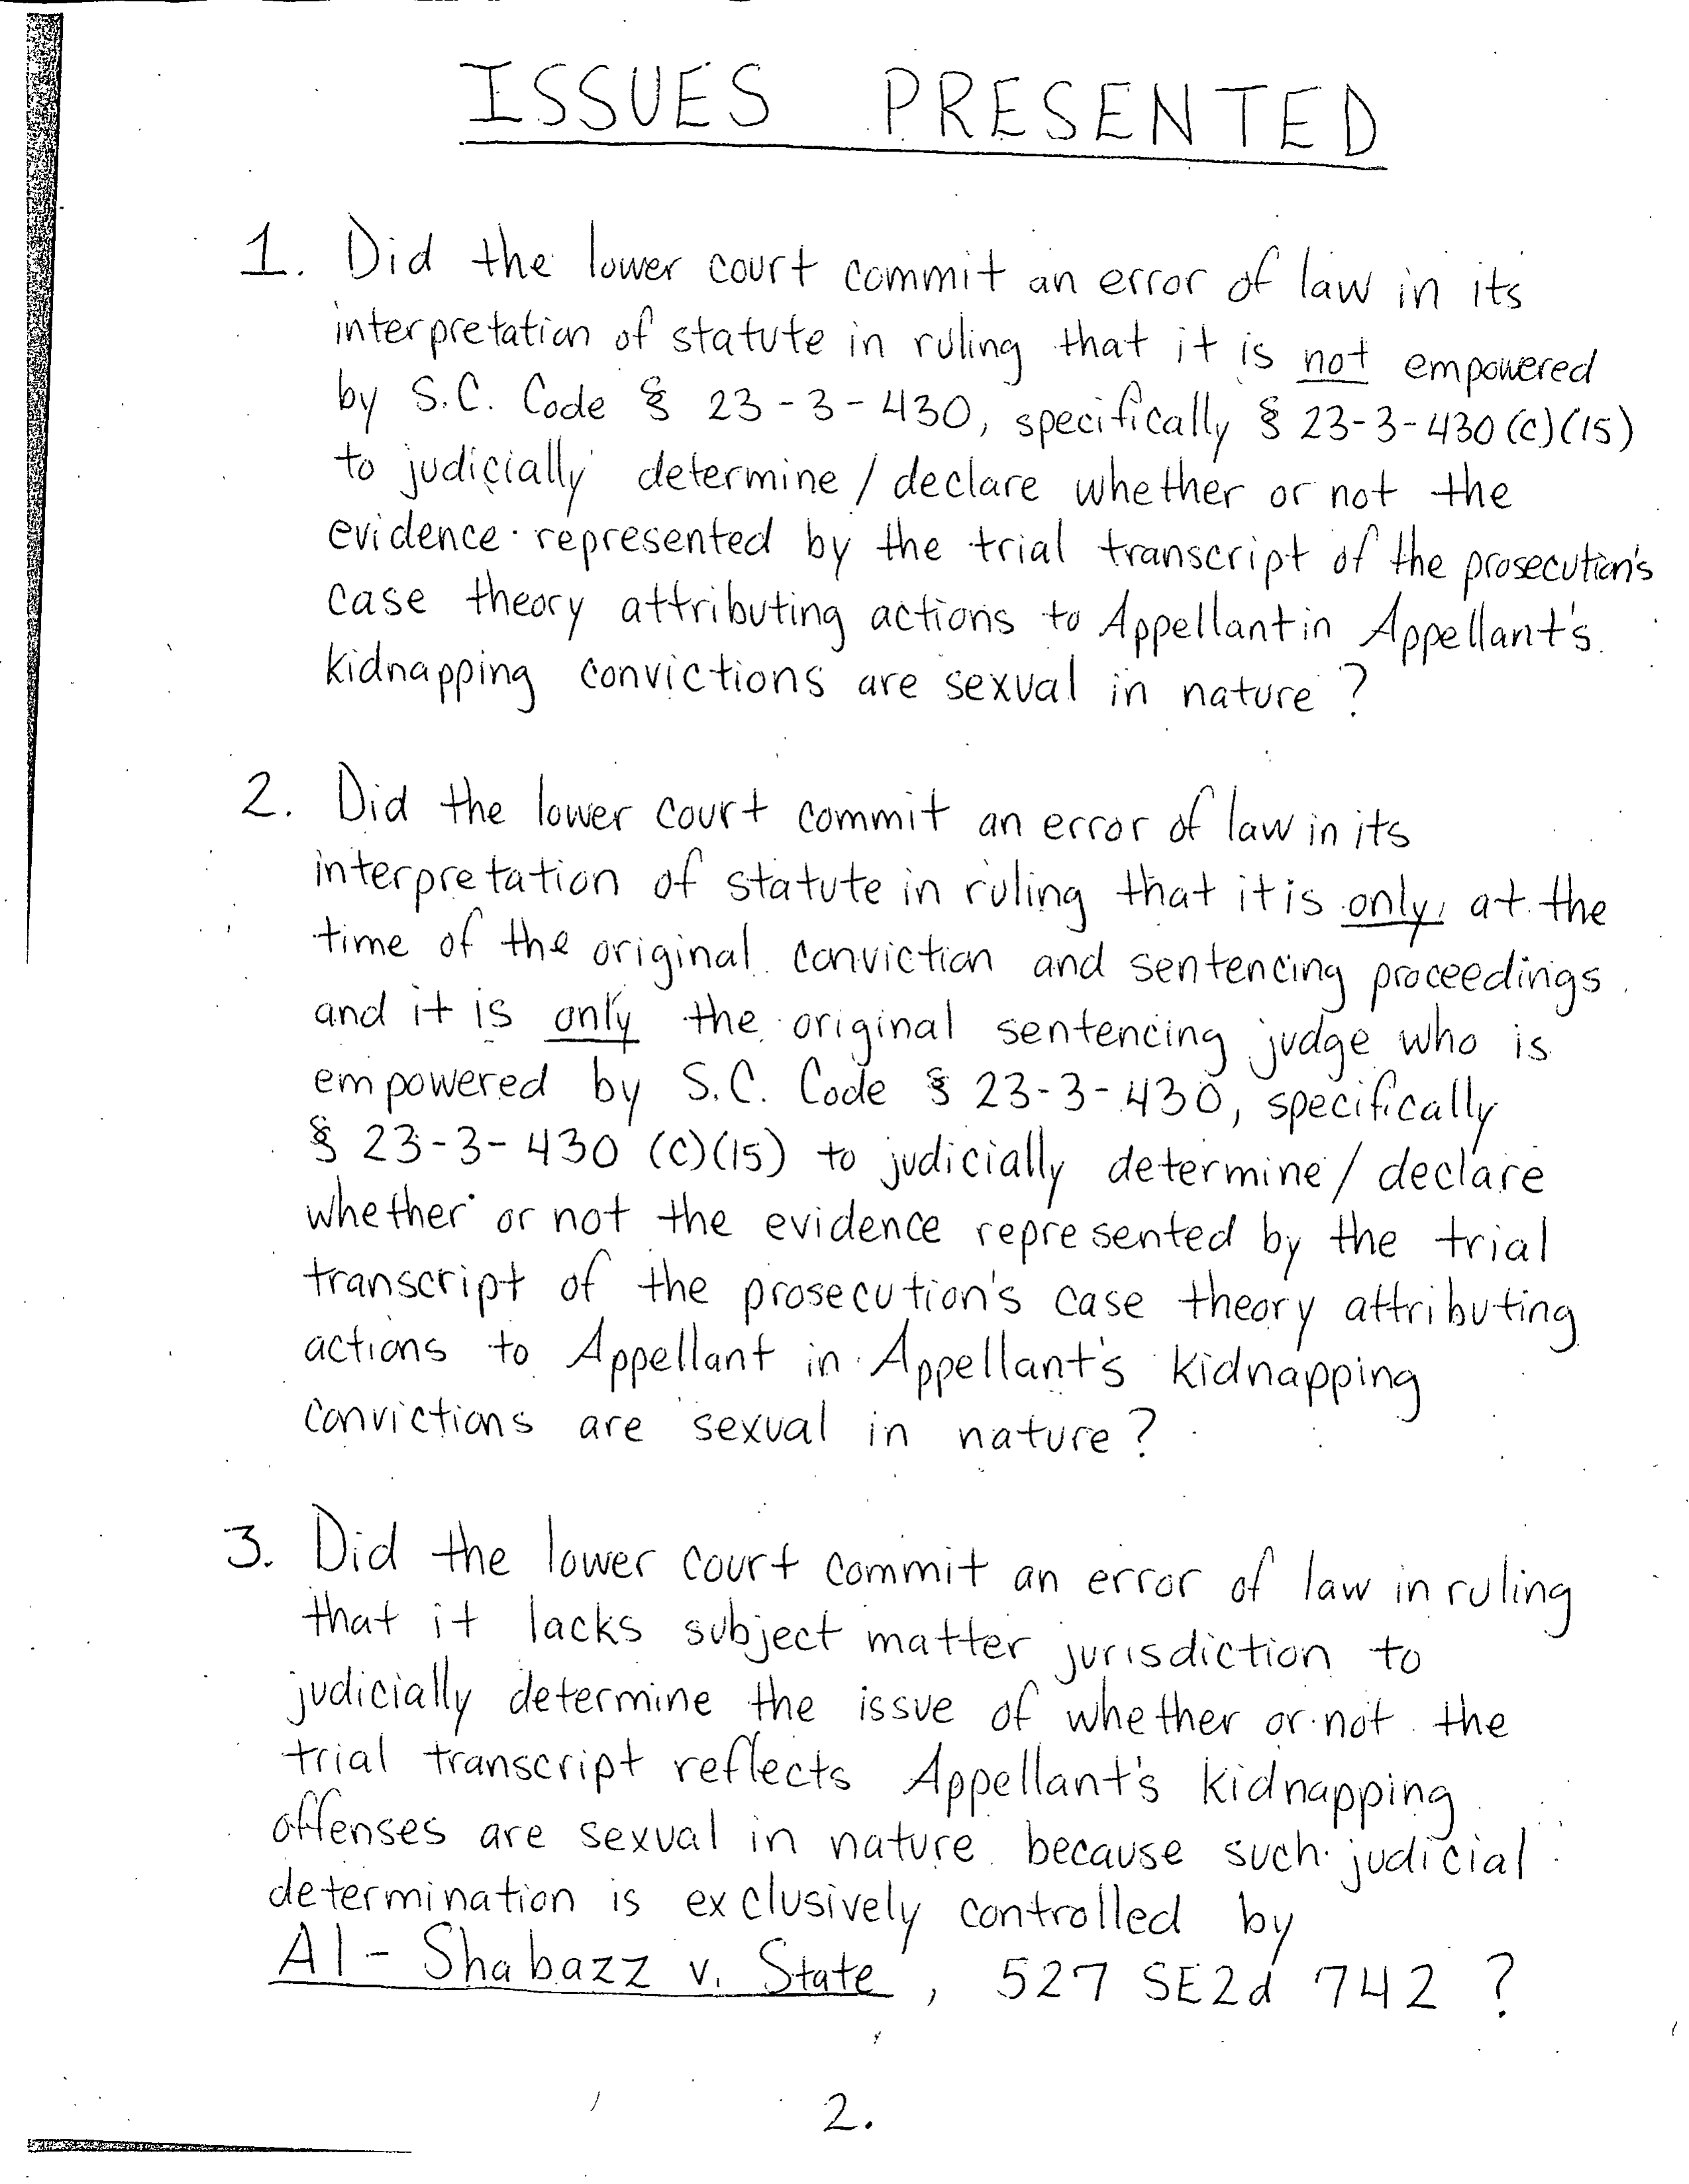 ISSUES PRESENTED
1. Did the lower court commit an error of law in its
interpretation of statute in ruling that it is not empowered
by S.C. Code § 23-3-430, specifically § 23-3-430(c)(15)
to judicially determine / declare whether or not the
evidence represented by the trial transcript of the prosecution's
case theory attributing actions to Appellant in Appellant's
kidnapping convictions are sexual in nature?
2. Did the lower court commit an error of law in its
interpretation of statute in ruling that it is only at the
time of the original conviction and sentencing proceedings
and it is only the original sentencing judge who is
empowered by S.C. Code § 23-3-430, specifically
§ 23-3-430 (c)(15) to judicially determine / declare
whether or not the evidence represented by the trial
transcript of the prosecution's case theory attributing
actions to Appellant in Appellant's kidnapping
convictions are sexual in nature?
3. Did the lower court commit an error of law in ruling
that it lacks subject matter jurisdiction to
judicially determine the issue of whether or not the
trial transcript reflects Appellant's kidnapping
offenses are sexual in nature because such judicial
determination is exclusively controlled by
Al-Shabazz v. State, 527 SE2d 742 ?
2.